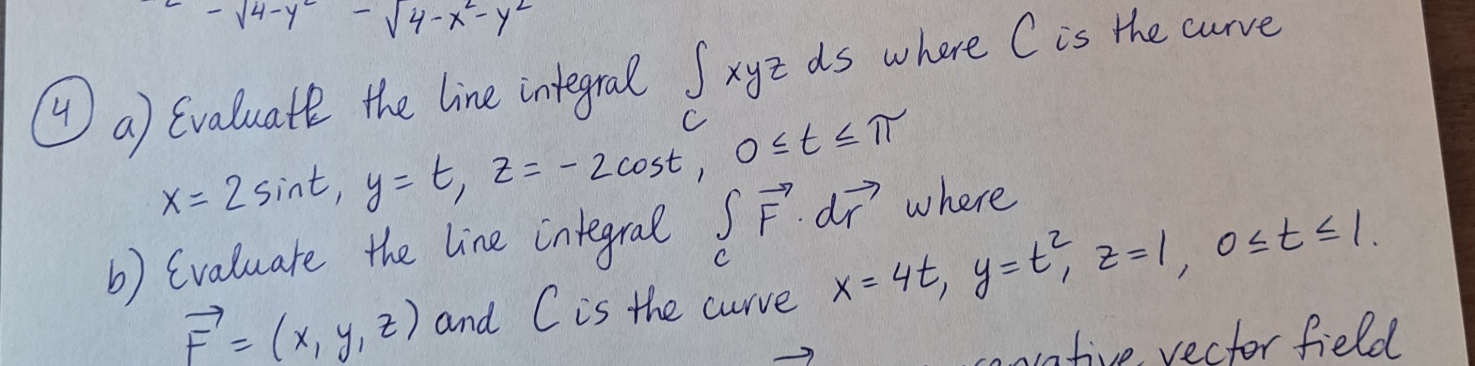 - √4-y² - √4-x²-y²
④ a) Evaluate the line integral ∫_C xyz ds where C is the curve
x = 2 sint, y = t, z = - 2 cost, 0 ≤ t ≤ π
b) Evaluate the line integral ∫_C F⃗ · dr⃗ where
F⃗ = (x, y, z) and C is the curve x = 4t, y = t², z = 1, 0 ≤ t ≤ 1.
vector field